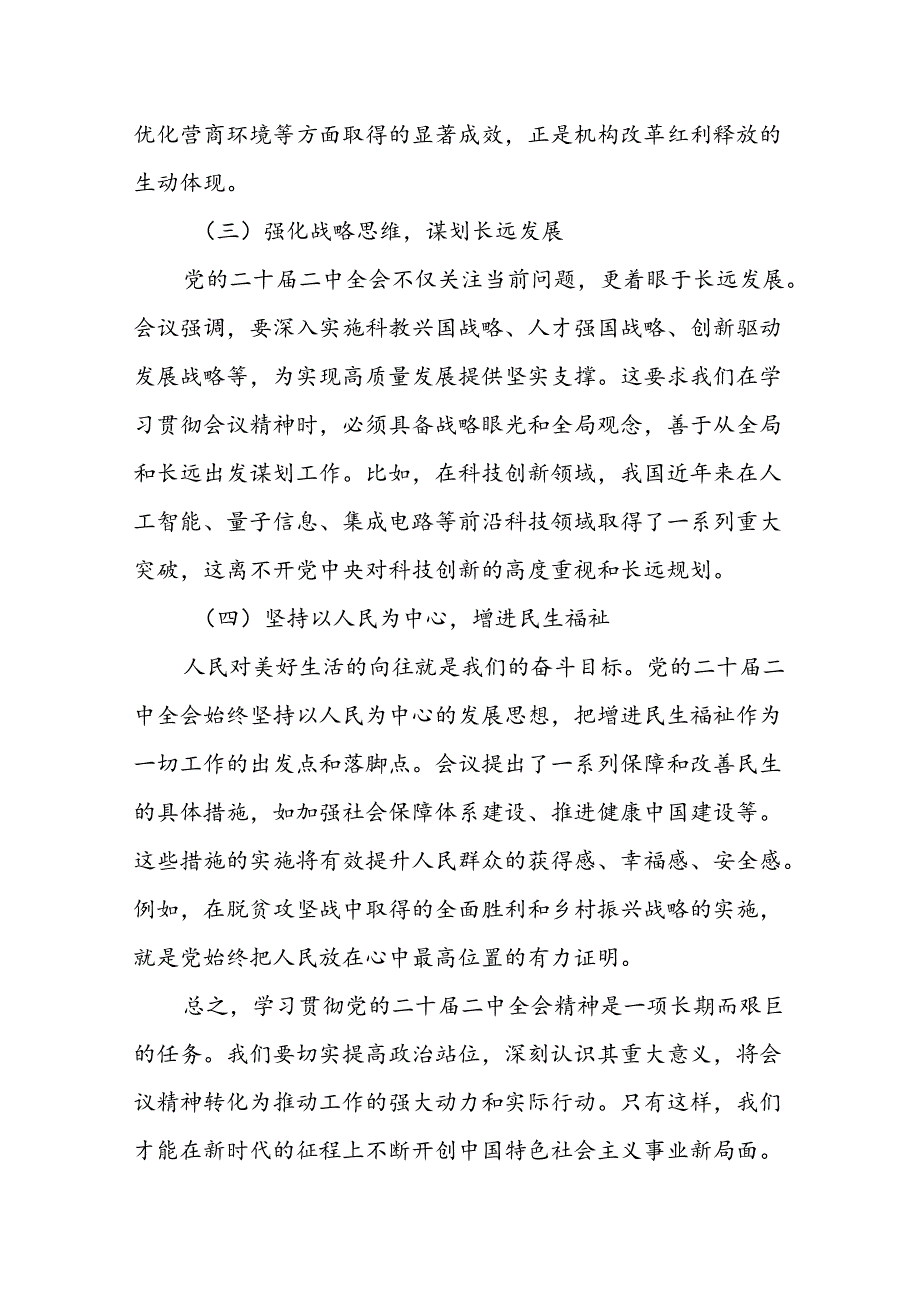 优化营商环境等方面取得的显著成效，正是机构改革红利释放的
生动体现。
（三）强化战略思维，谋划长远发展
党的二十届二中全会不仅关注当前问题，更着眼于长远发展。
会议强调，要深入实施科教兴国战略、人才强国战略、创新驱动
发展战略等，为实现高质量发展提供坚实支撑。这要求我们在学
习贯彻会议精神时，必须具备战略眼光和全局观念，善于从全局
和长远出发谋划工作。比如，在科技创新领域，我国近年来在人
工智能、量子信息、集成电路等前沿科技领域取得了一系列重大
突破，这离不开党中央对科技创新的高度重视和长远规划。
（四）坚持以人民为中心，增进民生福祉
人民对美好生活的向往就是我们的奋斗目标。党的二十届二
中全会始终坚持以人民为中心的发展思想，把增进民生福祉作为
一切工作的出发点和落脚点。会议提出了一系列保障和改善民生
的具体措施，如加强社会保障体系建设、推进健康中国建设等。
这些措施的实施将有效提升人民群众的获得感、幸福感、安全感。
例如，在脱贫攻坚战中取得的全面胜利和乡村振兴战略的实施，
就是党始终把人民放在心中最高位置的有力证明。
总之，学习贯彻党的二十届二中全会精神是一项长期而艰巨
的任务。我们要切实提高政治站位，深刻认识其重大意义，将会
议精神转化为推动工作的强大动力和实际行动。只有这样，我们
才能在新时代的征程上不断开创中国特色社会主义事业新局面。